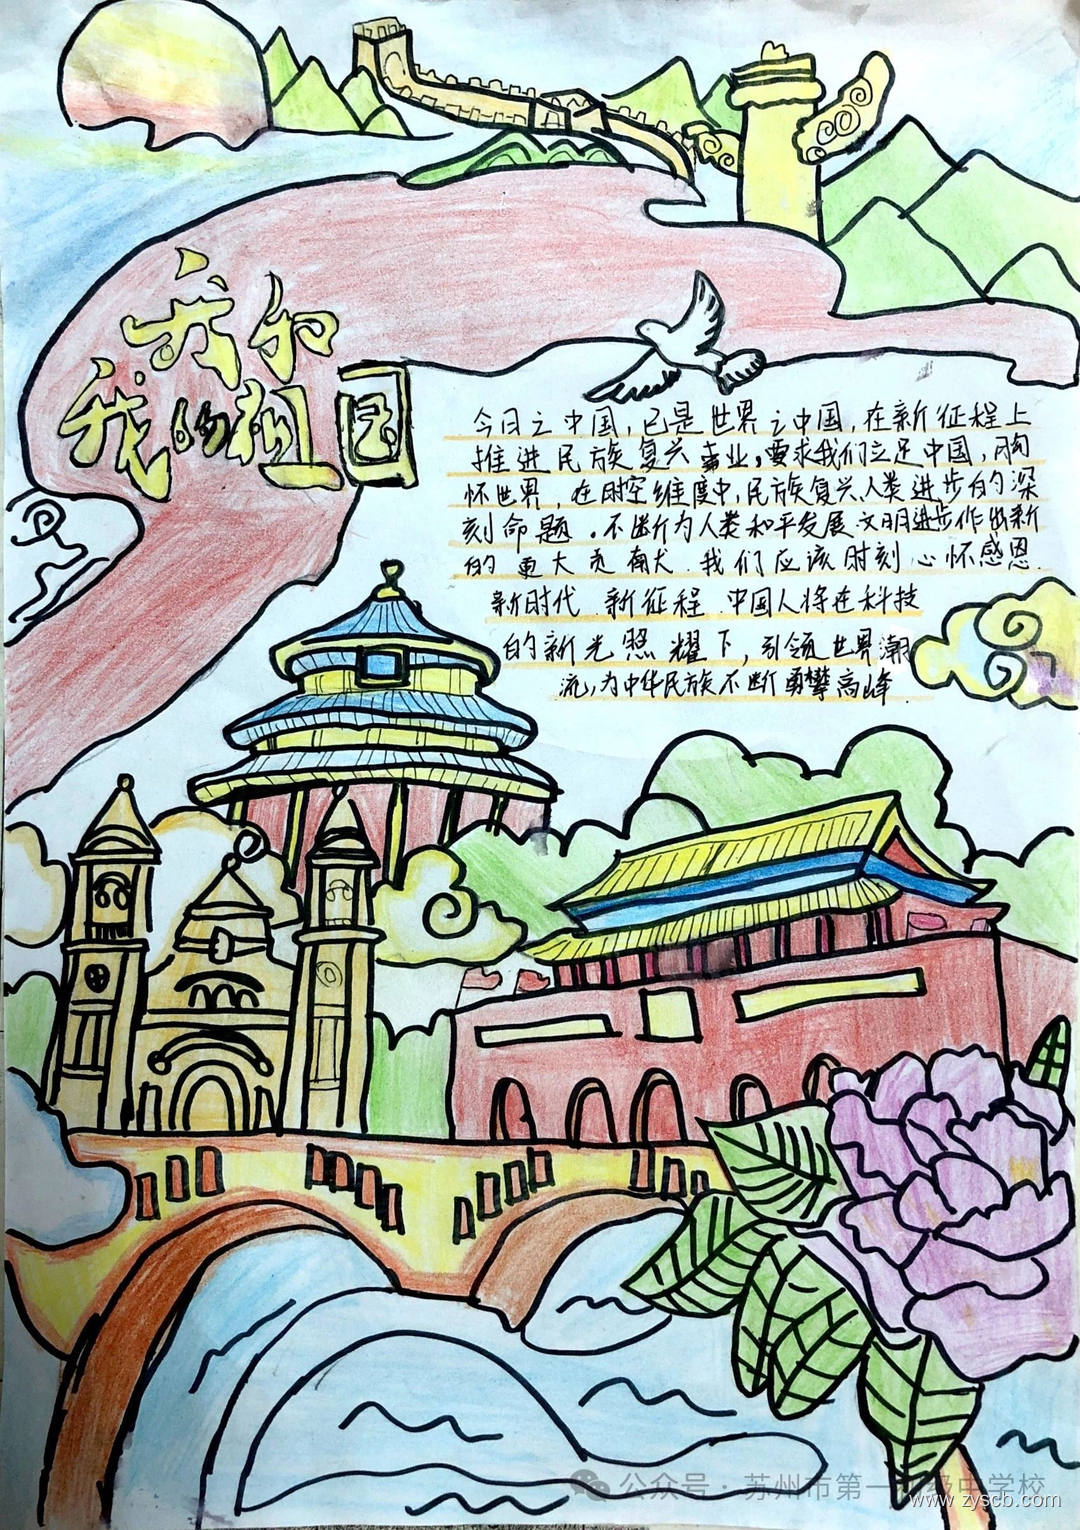 我和
我的祖国
今日之中国，已是世界之中国，在新征程上
推进民族复兴事业，要求我们立足中国，胸
怀世界，在时空维度中，民族复兴、人类进步的深
刻命题。不断为人类和平发展 文明进步作出新
的更大贡献 我们应该时刻心怀感恩.
新时代 新征程 中国人将在科技
的新光照耀下，引领世界潮
流，为中华民族不断勇攀高峰.
公众号·苏州市第一初级中学校
www.zyscb.com